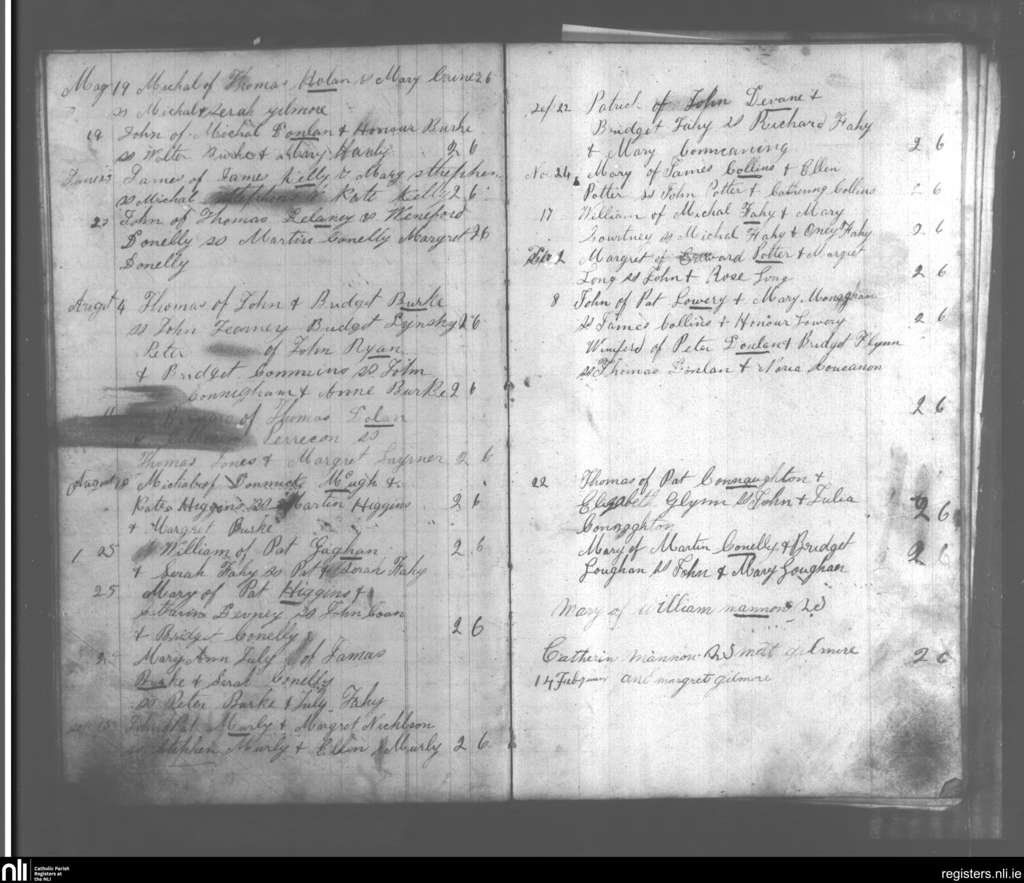 May 19 Michal of Thomas Holan & Mary Crine 2 6
ss Michal & Serah gilmore
19 John of Michal Donlan & Honour Burke
ss Wolter Burke & Mary Hanly 2 6
James of James Kelly & Mary Strephen
ss Michal Kate Kelly 2 6
23 John of Thomas Delaney & Wineford
Donelly ss Martin Conelly Margret 2 6
Donelly
August 4 Thomas of John & Bridget Burke
ss John Feorney Budget Lynsky 2 6
Peter of John Ryan
& Bridget Commins ss John
Connigham & Anne Burke 2 6
11 of Thomas Dolan
& Perrecon ss
Thomas Jones & Margret 2 6
August 18 Michal of Dominick McCugh &
Kate Higgins ss Martin Higgins 2 6
& Margret Burke
25 William of Pat Gaghan 2 6
& Serah Fahy ss Pat & Serah Fahy
25 Mary of Pat Higgins &
Devney ss John Coan
& Bridget Conelly 2 6
Mary Ann July of James
Burke & Serah Conelly
ss Peter Burke & July Fahy
15 John of Pat Murly & Margret Nichlson
ss Stephen Murly & Ellen Murly 2 6
22 Patrick of John Devane &
Bridget Fahy ss Richard Fahy
& Mary Comeaneng 2 6
No 24 Mary of James Collins & Ellen
Potter ss John Potter & Catherine Collins 2 6
17 William of Michal Fahy & Mary
Courtney ss Michel Fahy & Oney Fahy 2 6
Feb 2 Margret of Edward Potter & Margret
Long ss John & Rose Long 2 6
8 John of Pat Lowery & Mary Monaghan
ss James Collins & Honour Lowery 2 6
Winiferd of Peter Donlan & Bridget Flynn
ss Thomas Donlan & Noria Coucanon
2 6
22 Thomas of Pat Connaughton &
Elizabeth Glynn ss John & Julia 2 6
Connaghton
Mary of Martin Conelly & Bridget 2 6
Loughan ss John & Mary Loughan
Mary of William mannon
Catherin mannon ss mat gilmore 2 6
14 and margret gilmore
nli
Catholic Parish
Registers at
the NLI
registers.nli.ie